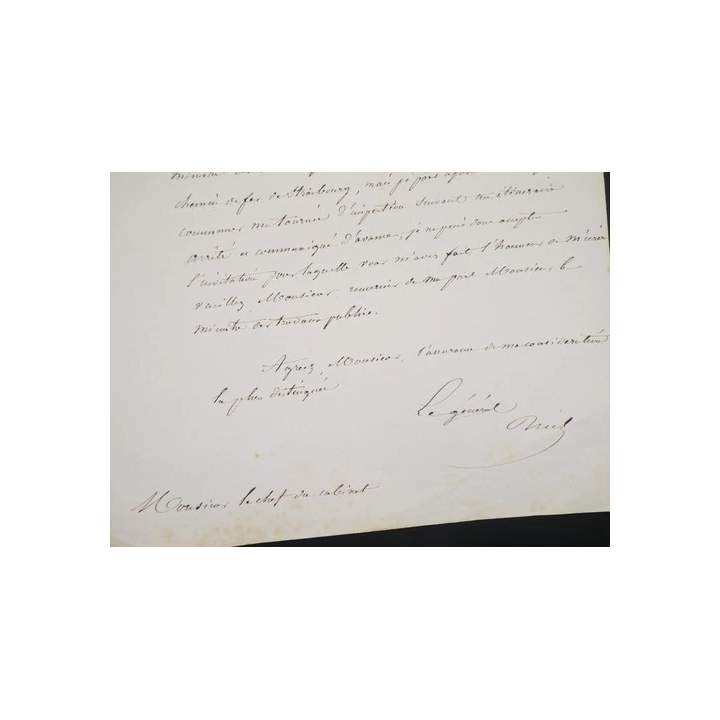 chemin de fer de Strasbourg, mais je pars
commencer ma tournée d'inspection suivant un itinéraire
arrêté et communiqué d'avance; je ne puis donc accepter
l'invitation pour laquelle vous m'avez fait l'honneur de m'écrire
veuillez, Monsieur, remercier de ma part Monsieur le
ministre des travaux publics.
Agréez, Monsieur, l'assurance de ma considération
la plus distinguée
Le général
Niel
Monsieur le chef du cabinet